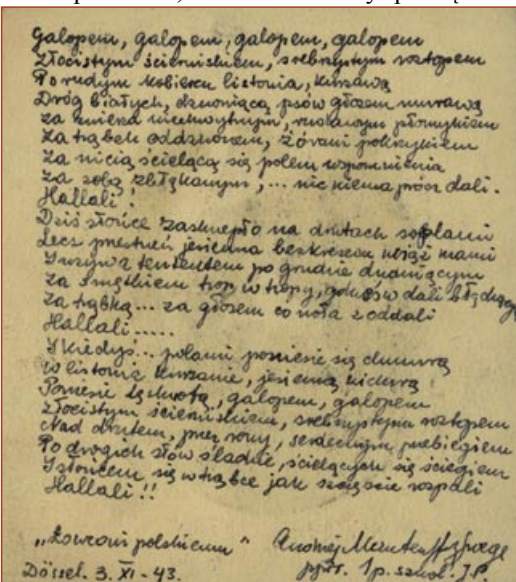 Galopem, galopem, galopem, galopem
Złocistym ścierniskiem, srebrzystym roztopem
Po rudym kobiercu listowia, kurzawą
Dróg białych, dzwoniącą psów głosem murawą
Za zwierza niechwytnym, rudawym płomykiem
Za trąbek oddzwonem, żórawi pokrzykiem
Za nicią, ścielącą się polem wspomnienia
Za sobą zbłąkanym, ... nic niema prócz dali.
Hallali !
Dziś słońce zaskrzepło na drutach soplami
Lecz przestrzeń jesienna bezkresem wciąż mami
I wzywa tententem po grudzie dudniącym
Za smętkiem trop w tropy, gdzieś w dali błądzącym
Za trąbką... za głosem co woła z oddali
Hallali.....
I kiedyś... polami poniesie się chmurą
W listowia kurzawie, jesienną wichurą
Poniesie tęsknota, galopem, galopem
Złocistym ścierniskiem, srebrzystym roztopem
Nad drutem, przez rowy, serdecznym przebiegiem
Po drogich słów śladzie, ścielących się ściegiem
I słońcem się w trąbce jak szczęście rozpali
Hallali !!
„Łowcowi polskiemu" Andrzej
Dössel. 3. XI - 43. ppor. 1 p. szwol. J.P.